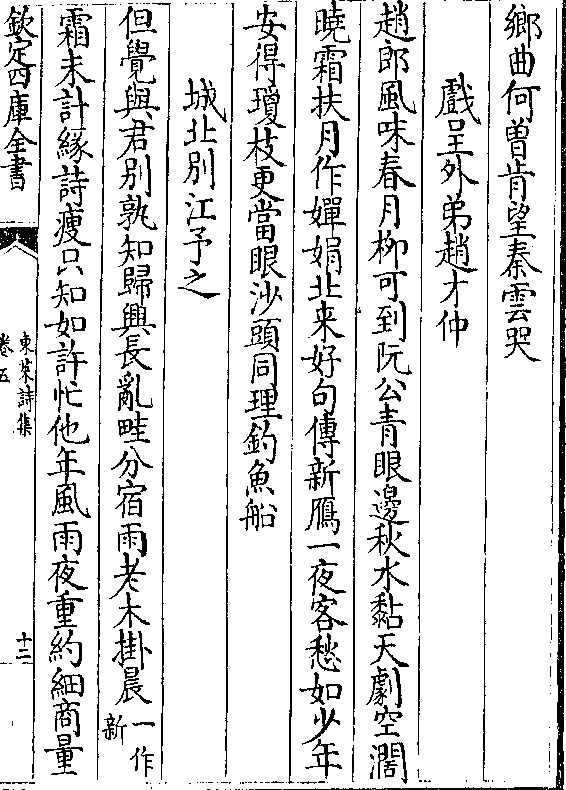 鄉曲何曽肯望秦雲哭
戲呈外弟趙才仲
趙郎風味春月栁可到阮公青眼邊秋水黏天劇空濶
曉霜扶月作嬋娟北来好句傳新鴈一夜客愁如少年
安得瓊枝更當眼沙頭同理釣魚船
城北别江予之
但覺與君别孰知歸興長亂畦分宿雨老木掛晨一作新
霜未計緣詩瘦只知如許忙他年風雨夜重約細商量
欽定四庫全書
東萊詩集
卷五
十二